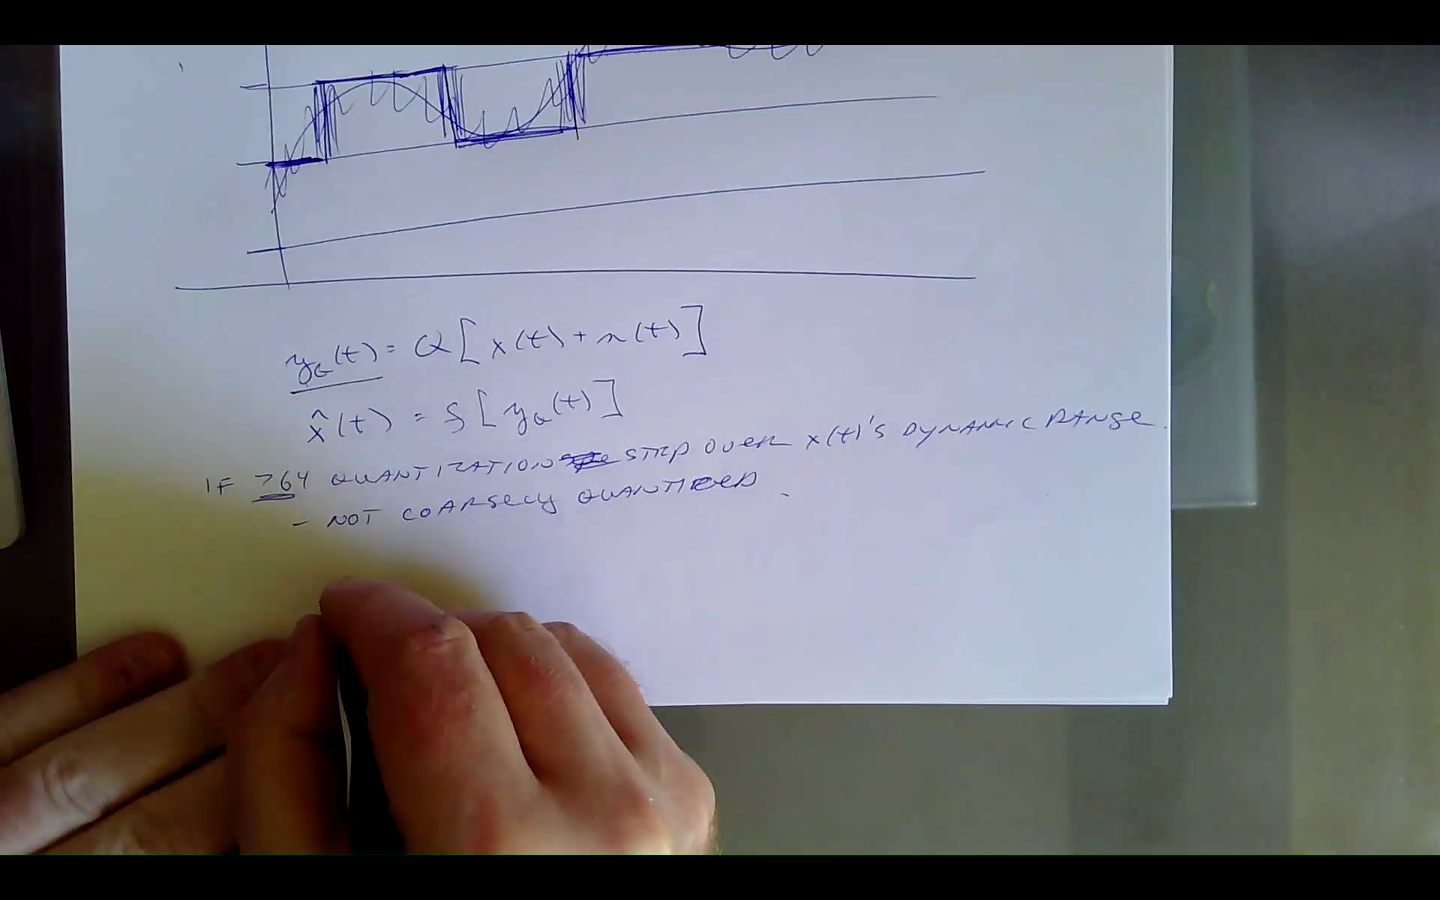 y_Q(t) = Q[x(t) + n(t)]
x̂(t) = S[y_Q(t)]
IF >64 QUANTIZATION STEP OVER x(t)'S DYNAMIC RANGE.
- NOT COARSELY QUANTIZED